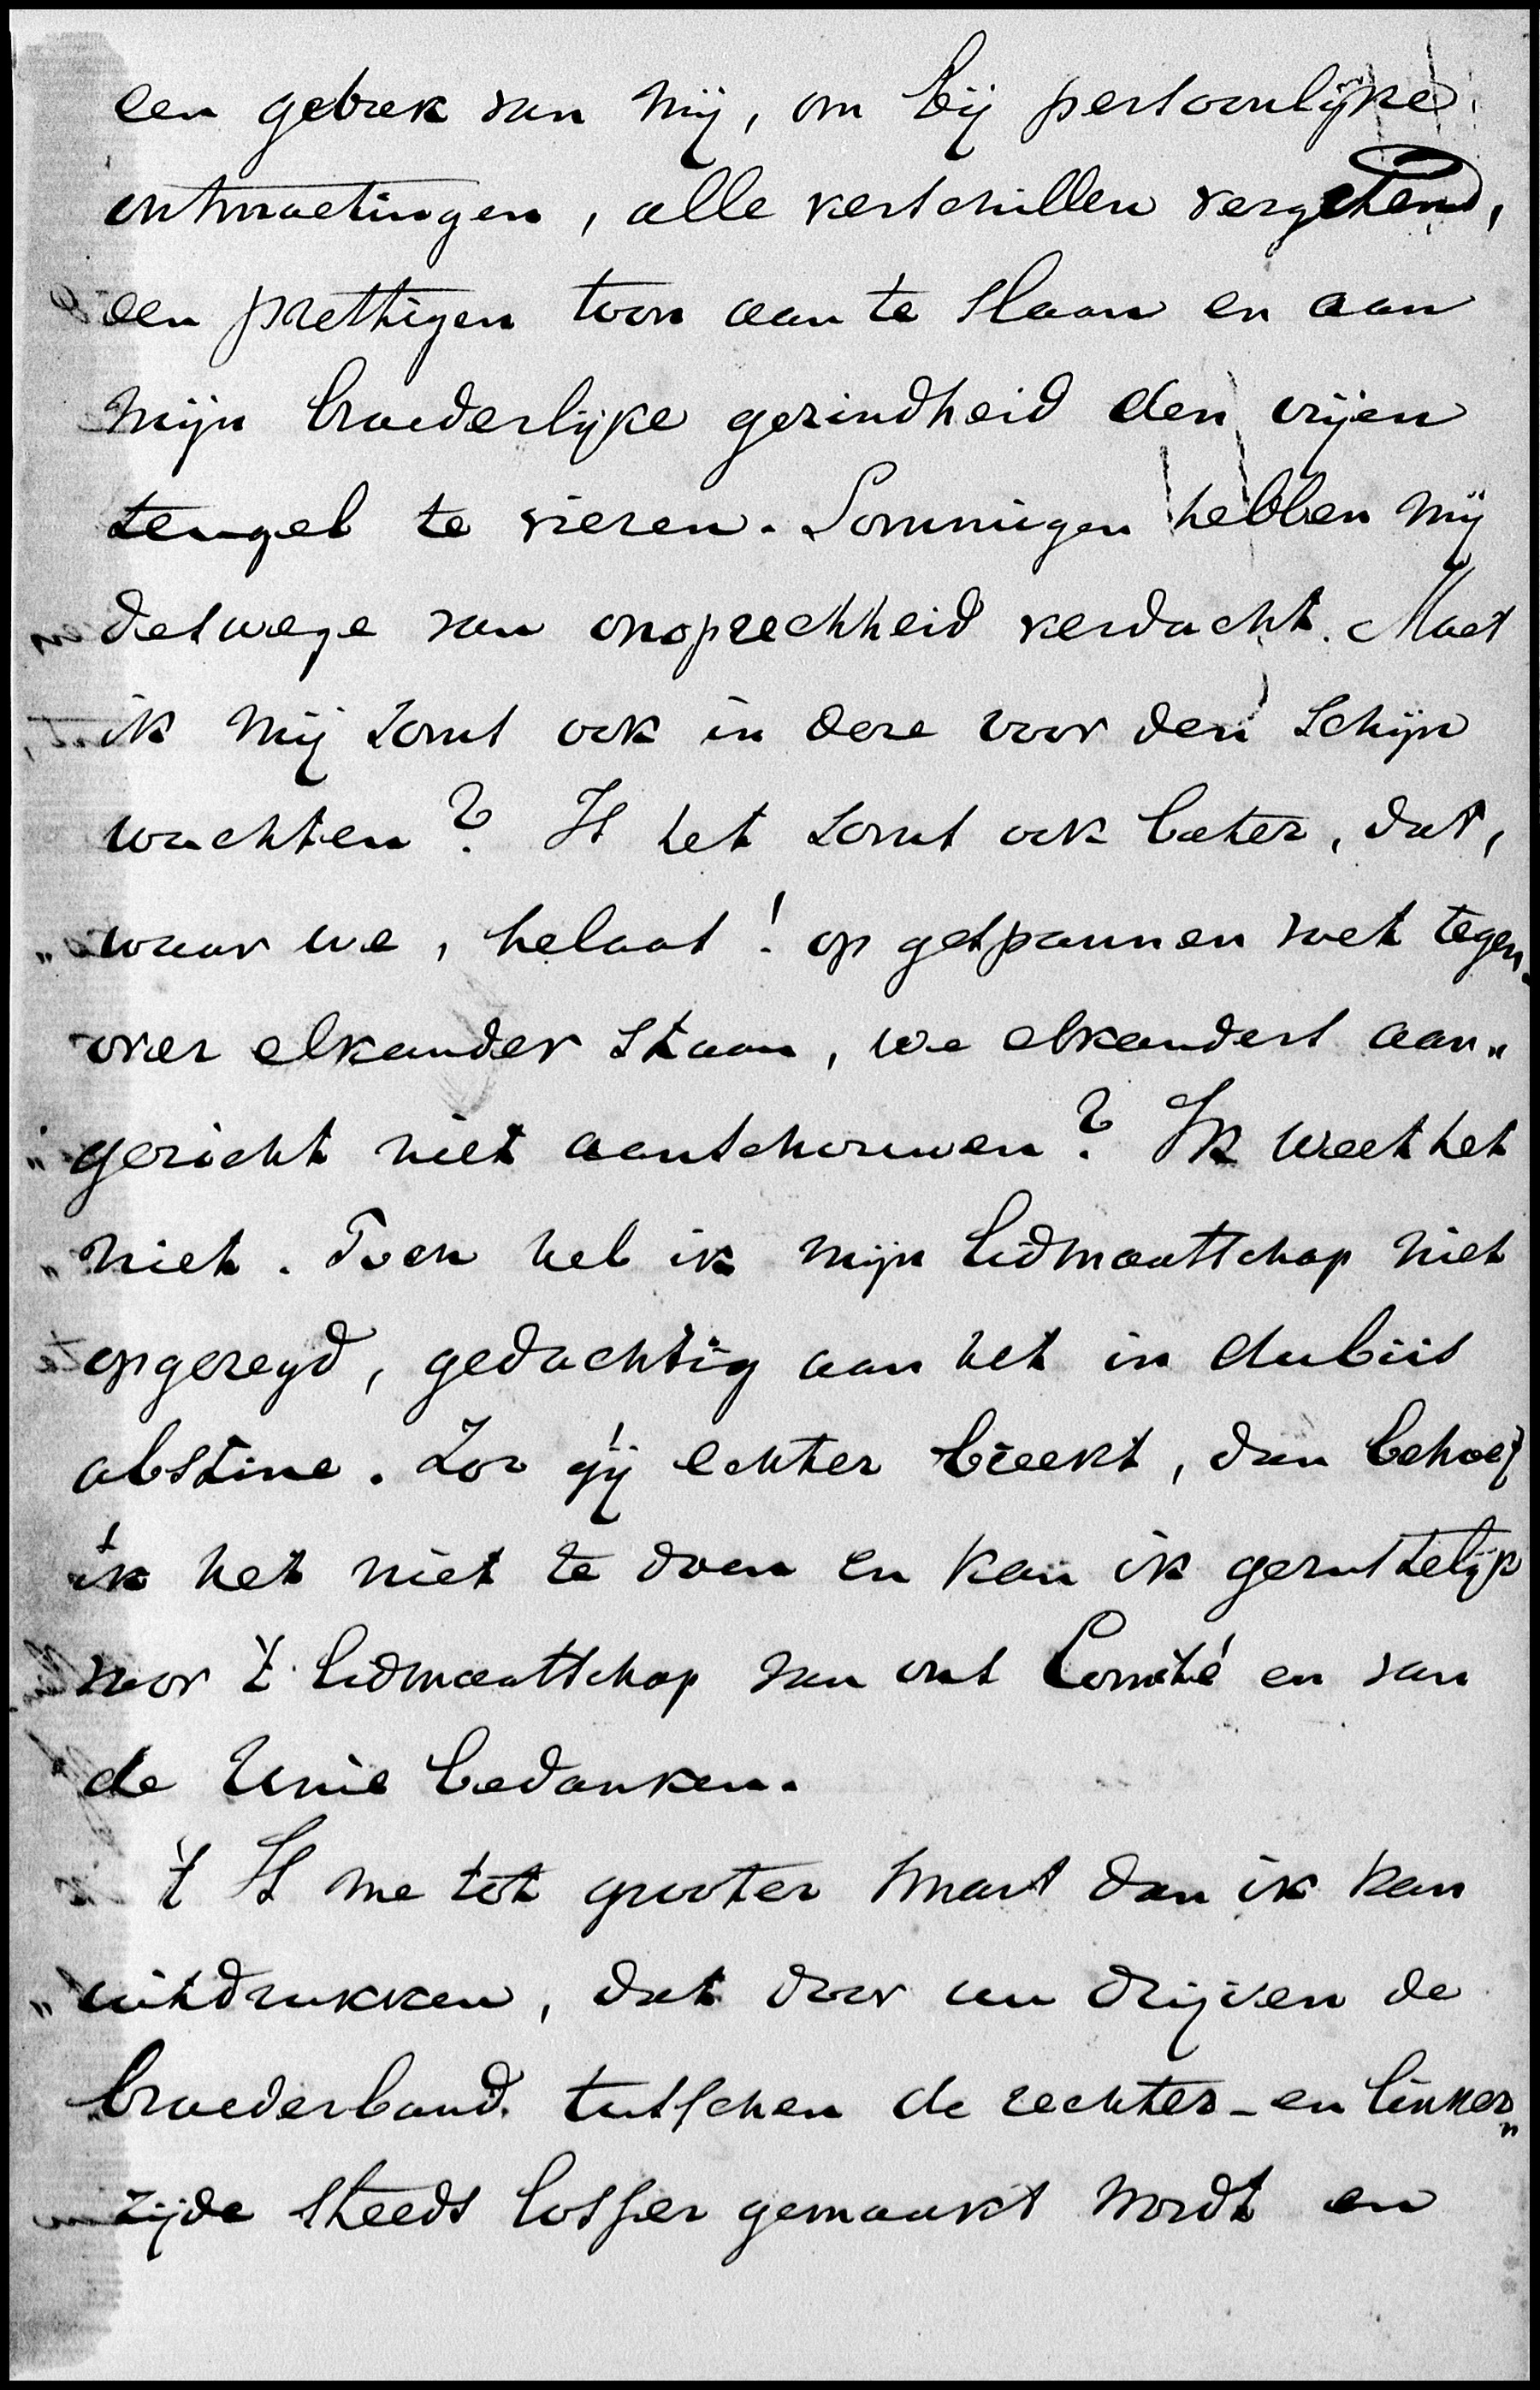 een gebrek van mij, om bij persoonlijke
ontmoetingen, alle verschillen vergetend,
een prettigen toon aan te slaan en aan
mijn broederlijke gezindheid den vrijen
teugel te vieren. Sommigen hebben mij
deswege van onoprechtheid verdacht. Moet
ik mij soms ook in deze voor den schijn
wachten? Is het soms ook beter, dat,
waar we, helaas! op gespannen voet tegen-
over elkander staan, we elkanders aan„
gezicht niet aanschouwen? Ik weet het
„niet. Toen heb ik mijn lidmaatschap niet
opgezegd, gedachtig aan het in dubiis
abstine. Zoo gij echter breekt, dan behoef
ik het niet te doen en kan ik gerustelijk
voor 't lidmaatschap van ons Comité en van
de Unie bedanken.
't Is me tot grooter smart dan ik kan
„uitdrukken, dat door uw drijven de
broederband tusschen de rechter- en linker„
zijde steeds losser gemaakt wordt en